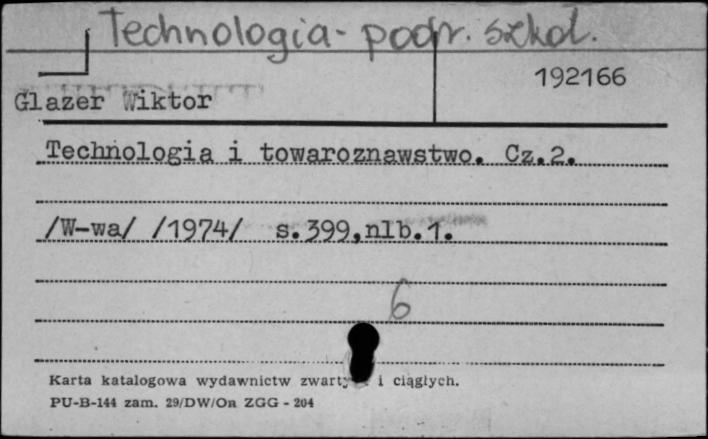 Technologia - podr. szkol.
192166
Glazer Wiktor
Technologia i towaroznawstwo. Cz.2.
/W-wa/ /1974/ s.399,nlb.1.
6
Karta katalogowa wydawnictw i ciągłych.
PU-B-144 zam. 29/DW/On ZGG - 204